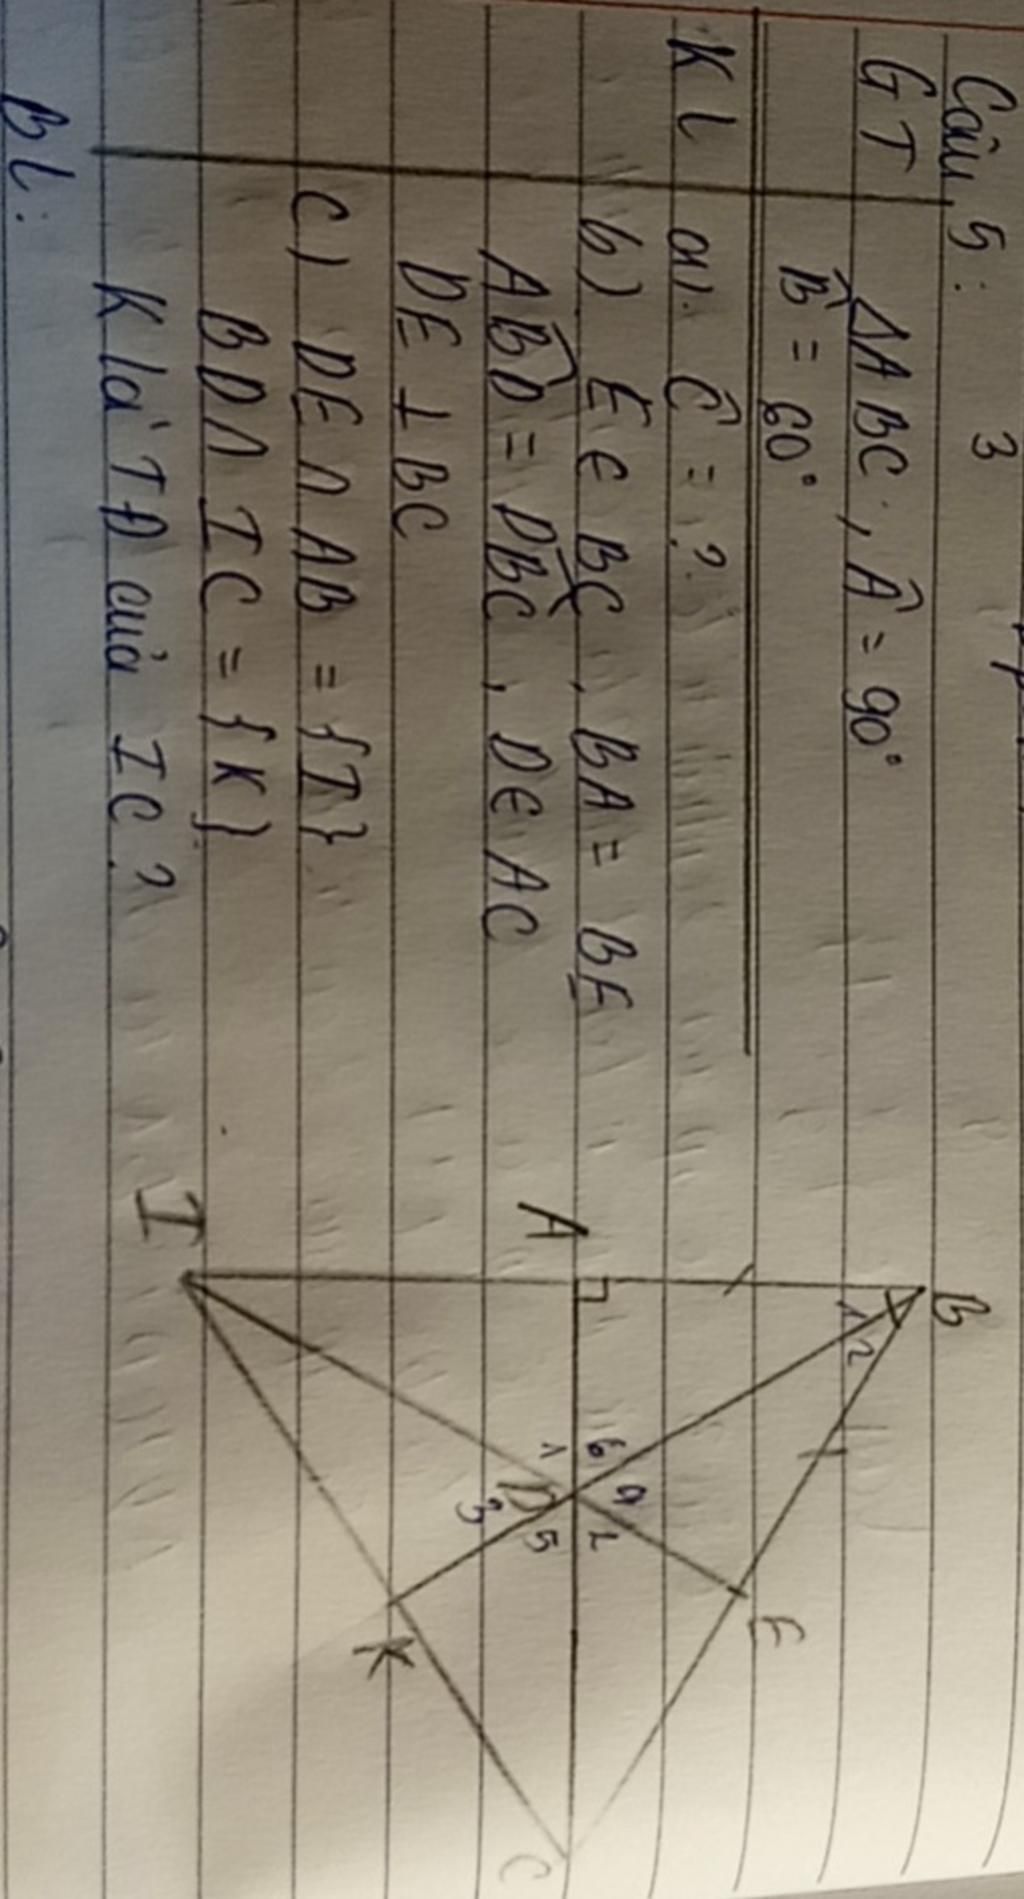 Câu 5:
3
GT
ΔABC, Â = 90°
B̂ = 60°
KL
a). Ĉ = ?
b) E ∈ BC, BA = BE
ABD = DBC, D ∈ AC
DE ⊥ BC
c) DE ∩ AB = {I}
BD ∩ IC = {K}
K là TĐ của IC?
BL:
B
1 2
A
6 4
1 2
D
3 5
E
I
K
C